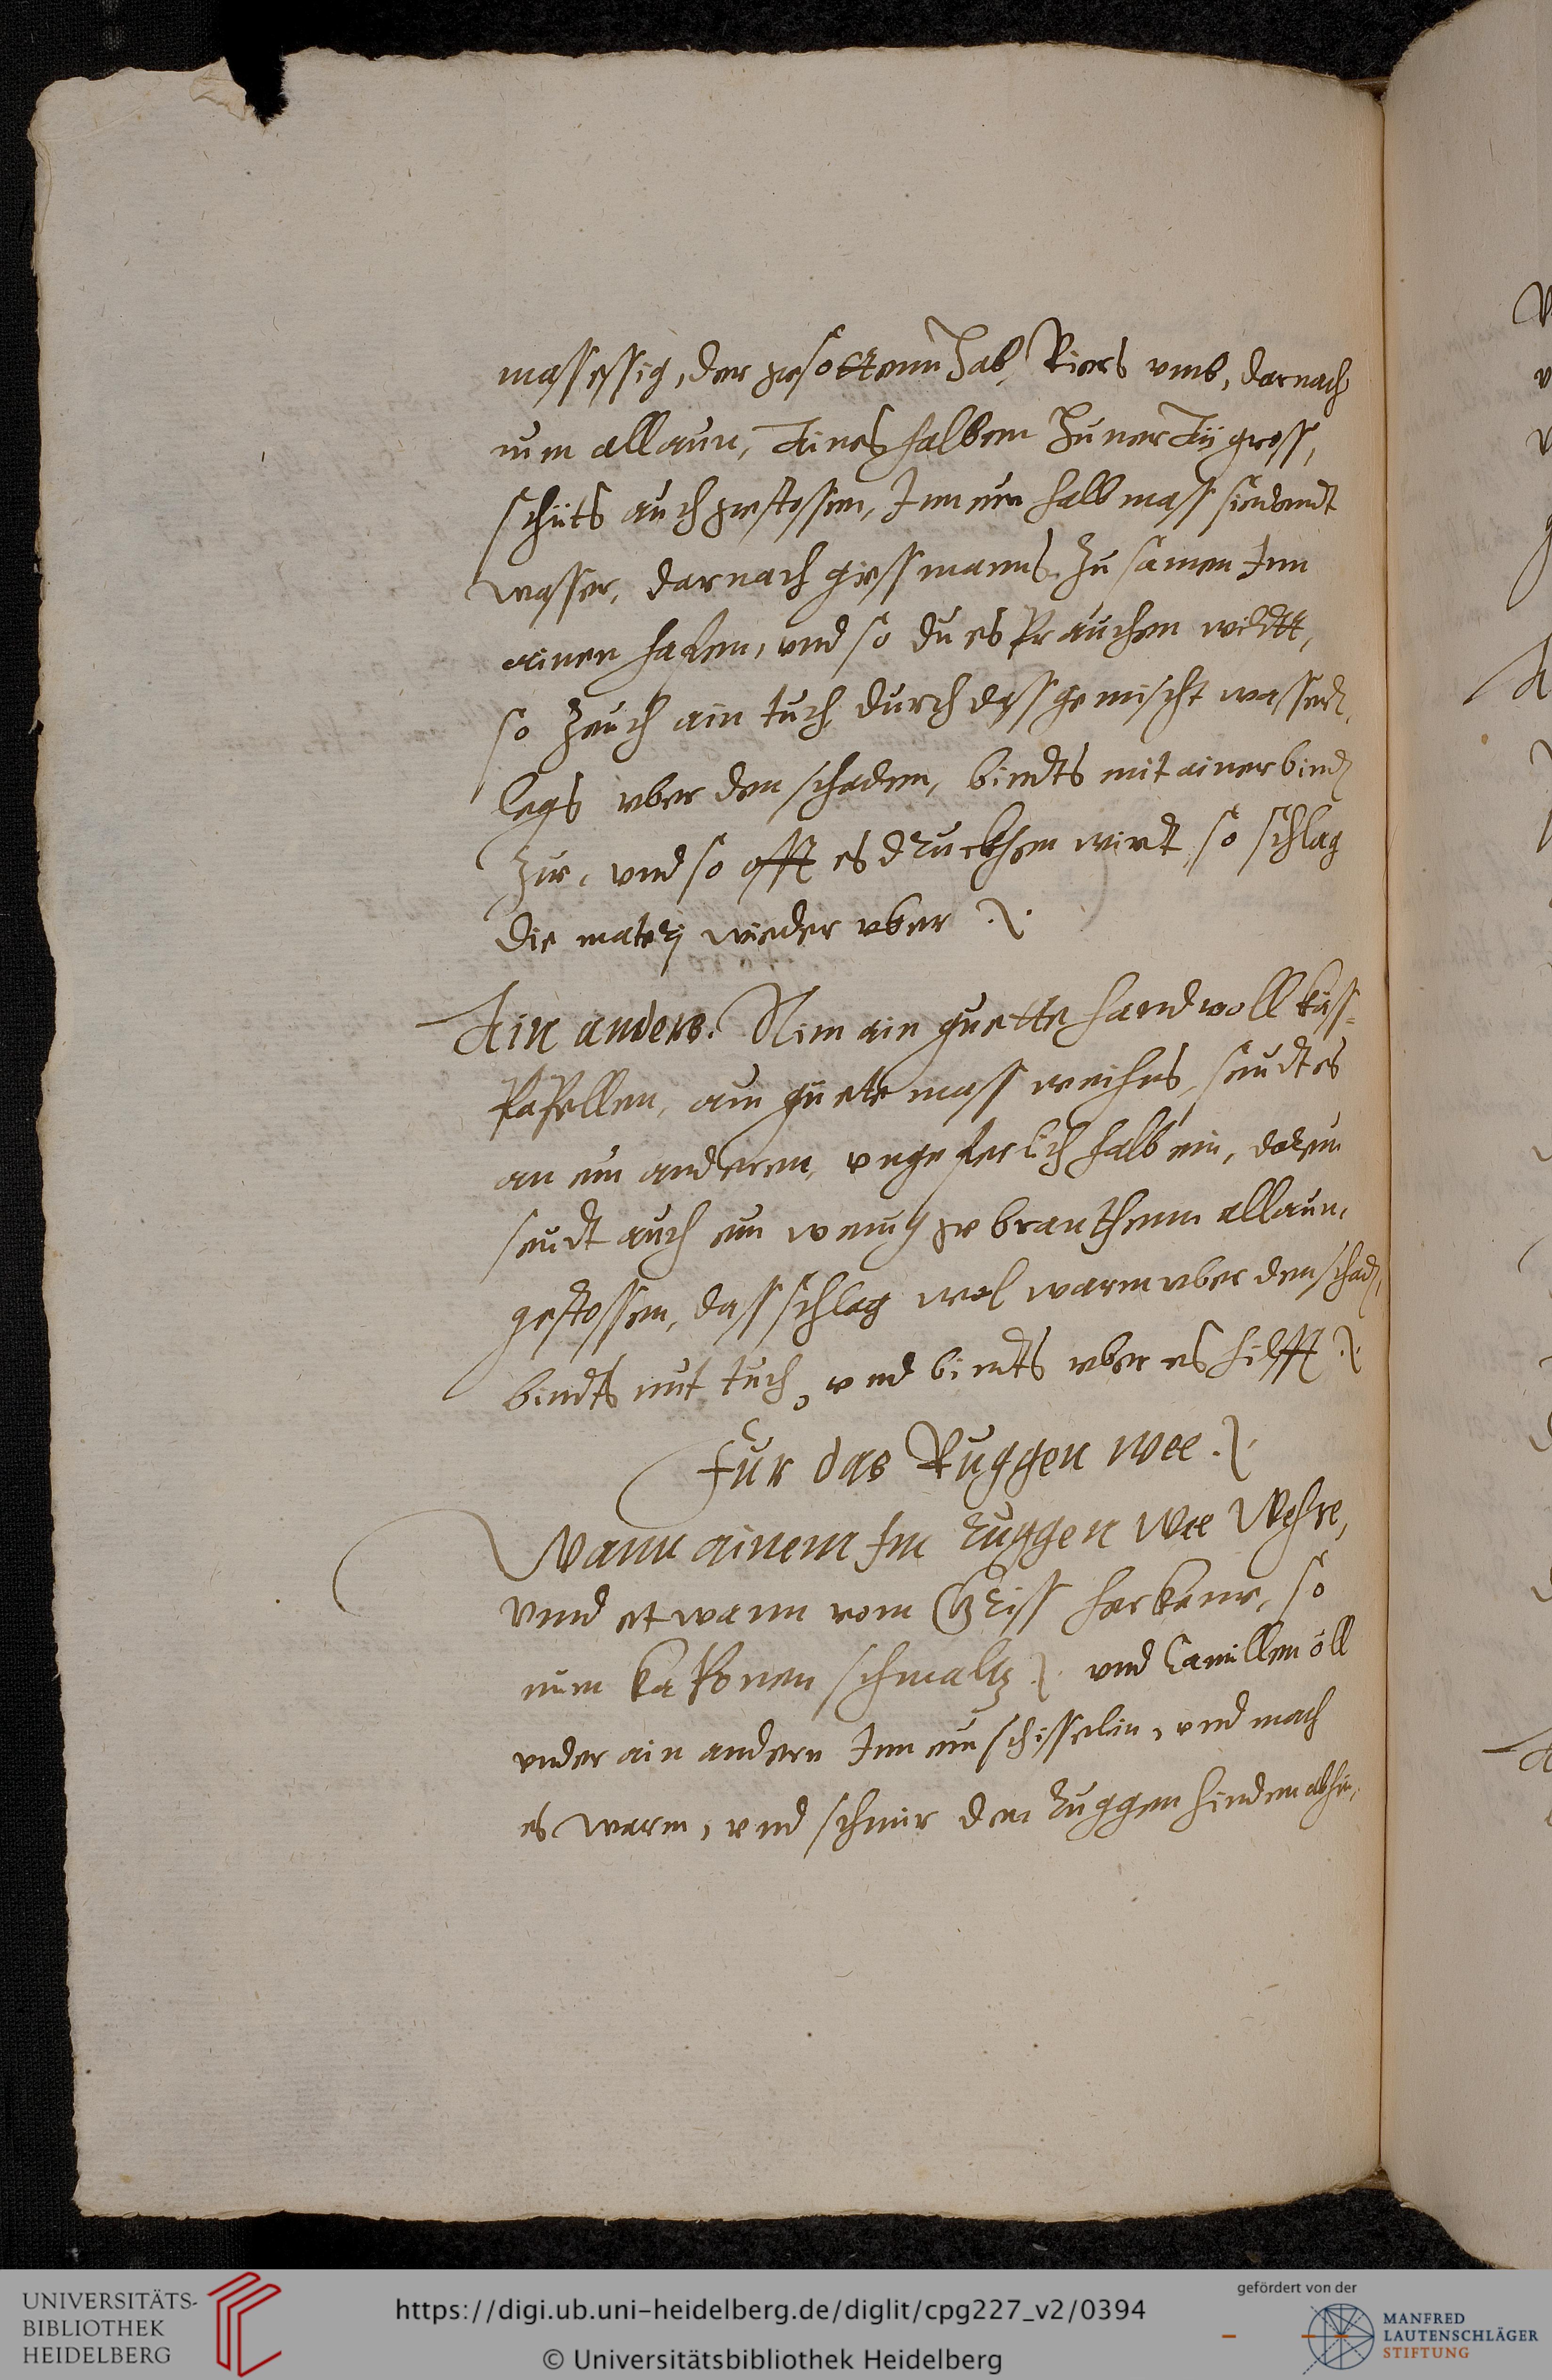 mass essig, der gesottenn hab, Riers vmb, darnach
nim allaun, Aines halben huner Aÿ gross,
schüts auch gestossen, Inn ein halb mass siendendt
wasser, darnach giess manns zu samen Inn
ainen hafen, vnd so du es Prauchen wildt,
so Zeuch ain tuch durch dass gemischt wasser,
legs vber den schaden, bindts mit ainer bind
Zur, vnd so offt es druckhen wirt, so schlag
die materj wieder vber ./.
Ain anders. Nim ain guette handvoll käss=
Papellen, ain guete mass weihes, seudt es
an ein anderen, vngeferlich halb ein, darein
seudt auch ein wenig gebranthenn allaun,
gestossen, dass schlag wol warm vber den schad,
bindts mit tuch, vnd bindts vber es hilfft ./.
Für das Ruggen wee ./.
Wann ainem Im Ruggen wee Wehre,
vnnd etwann vom Griss herkeme, so
nim kaponen schmaltz ./. vnd Camillen öll
vnder ain andern Inn ein schisselin, vnd mach
es warm, vnd schmir den Ruggen hinden abhin,
UNIVERSITÄTS-
BIBLIOTHEK
HEIDELBERG
https://digi.ub.uni-heidelberg.de/diglit/cpg227_v2/0394
© Universitätsbibliothek Heidelberg
gefördert von der
MANFRED
LAUTENSCHLÄGER
STIFTUNG